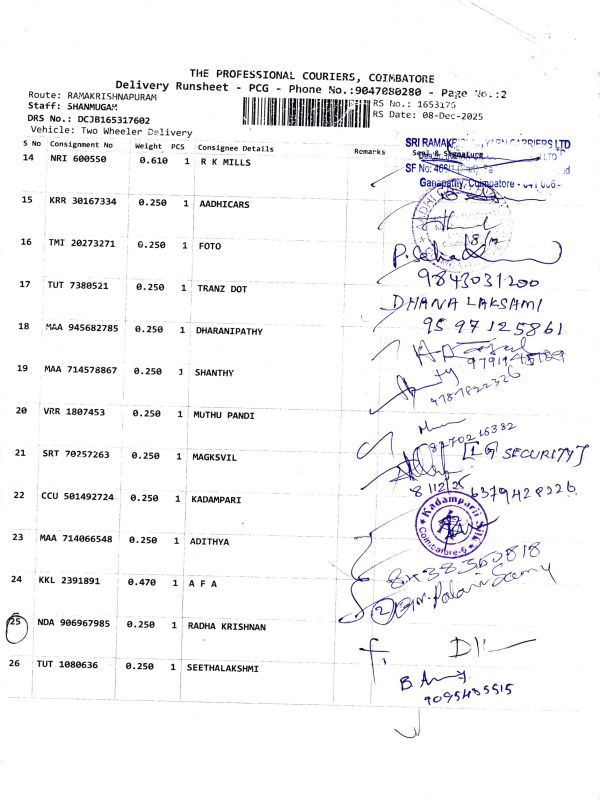 THE PROFESSIONAL COURIERS, COIMBATORE
Delivery Runsheet - PCG - Phone No.:9047080280 - Page No.:2
Route: RAMAKRISHNAPURAM
Staff: SHANMUGAM
RS No.: 1653176
DRS No.: DCJB165317602
RS Date: 08-Dec-2025
Vehicle: Two Wheeler Delivery
S No Consignment No Weight PCS Consignee Details Remarks Seal & Signature
SRI
CARRIERS LTD
SF No:
Ganapathy, Coimbatore
14 NRI 600550 0.610 1 R K MILLS
15 KRR 30167334 0.250 1 AADHICARS
16 TMI 20273271 0.250 1 FOTO
9843031200
17 TUT 7380521 0.250 1 TRANZ DOT
DHANA LAKSAMI
9597125861
18 MAA 945682785 0.250 1 DHARANIPATHY
19 MAA 714578867 0.250 1 SHANTHY
9787822326
20 VRR 1807453 0.250 1 MUTHU PANDI
21 SRT 70257263 0.250 1 MAGKSVIL
SECURITY
8/12/25
6379428326
22 CCU 501492724 0.250 1 KADAMPARI
Kadamparii Silk
Coimbatore-6
23 MAA 714066548 0.250 1 ADITHYA
24 KKL 2391891 0.470 1 A F A
25 NDA 906967985 0.250 1 RADHA KRISHNAN
26 TUT 1080636 0.250 1 SEETHALAKSHMI
9095435515